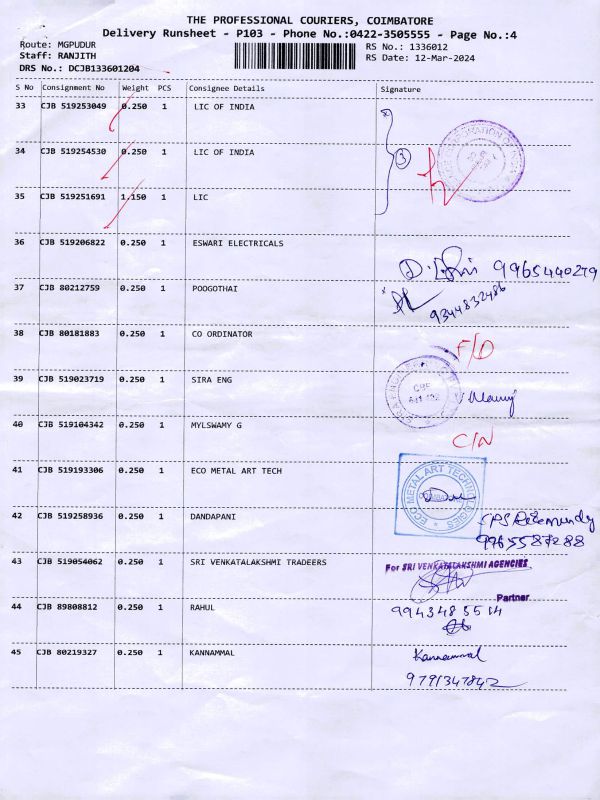 THE PROFESSIONAL COURIERS, COIMBATORE
Delivery Runsheet - P103 - Phone No.:0422-3505555 - Page No.:4
Route: MGPUDUR
RS No.: 1336012
Staff: RANJITH
RS Date: 12-Mar-2024
DRS No.: DCJB133601204
S No Consignment No Weight PCS Consignee Details Signature
33 CJB 519253049 0.250 1 LIC OF INDIA
34 CJB 519254530 0.250 1 LIC OF INDIA
3
35 CJB 519251691 1.150 1 LIC
36 CJB 519206822 0.250 1 ESWARI ELECTRICALS
9965440279
37 CJB 80212759 0.250 1 POOGOTHAI
9344832486
38 CJB 80181883 0.250 1 CO ORDINATOR
F/D
39 CJB 519023719 0.250 1 SIRA ENG
CBE
40 CJB 519104342 0.250 1 MYLSWAMY G
C/N
41 CJB 519193306 0.250 1 ECO METAL ART TECH
ECO METAL ART TECHNOLOGIES
42 CJB 519258936 0.250 1 DANDAPANI
9965587288
43 CJB 519054062 0.250 1 SRI VENKATALAKSHMI TRADEERS
For SRI VENKATALAKSHMI AGENCIES
Partner
44 CJB 89808812 0.250 1 RAHUL
9943485514
45 CJB 80219327 0.250 1 KANNAMMAL
Kannammal
9791347842